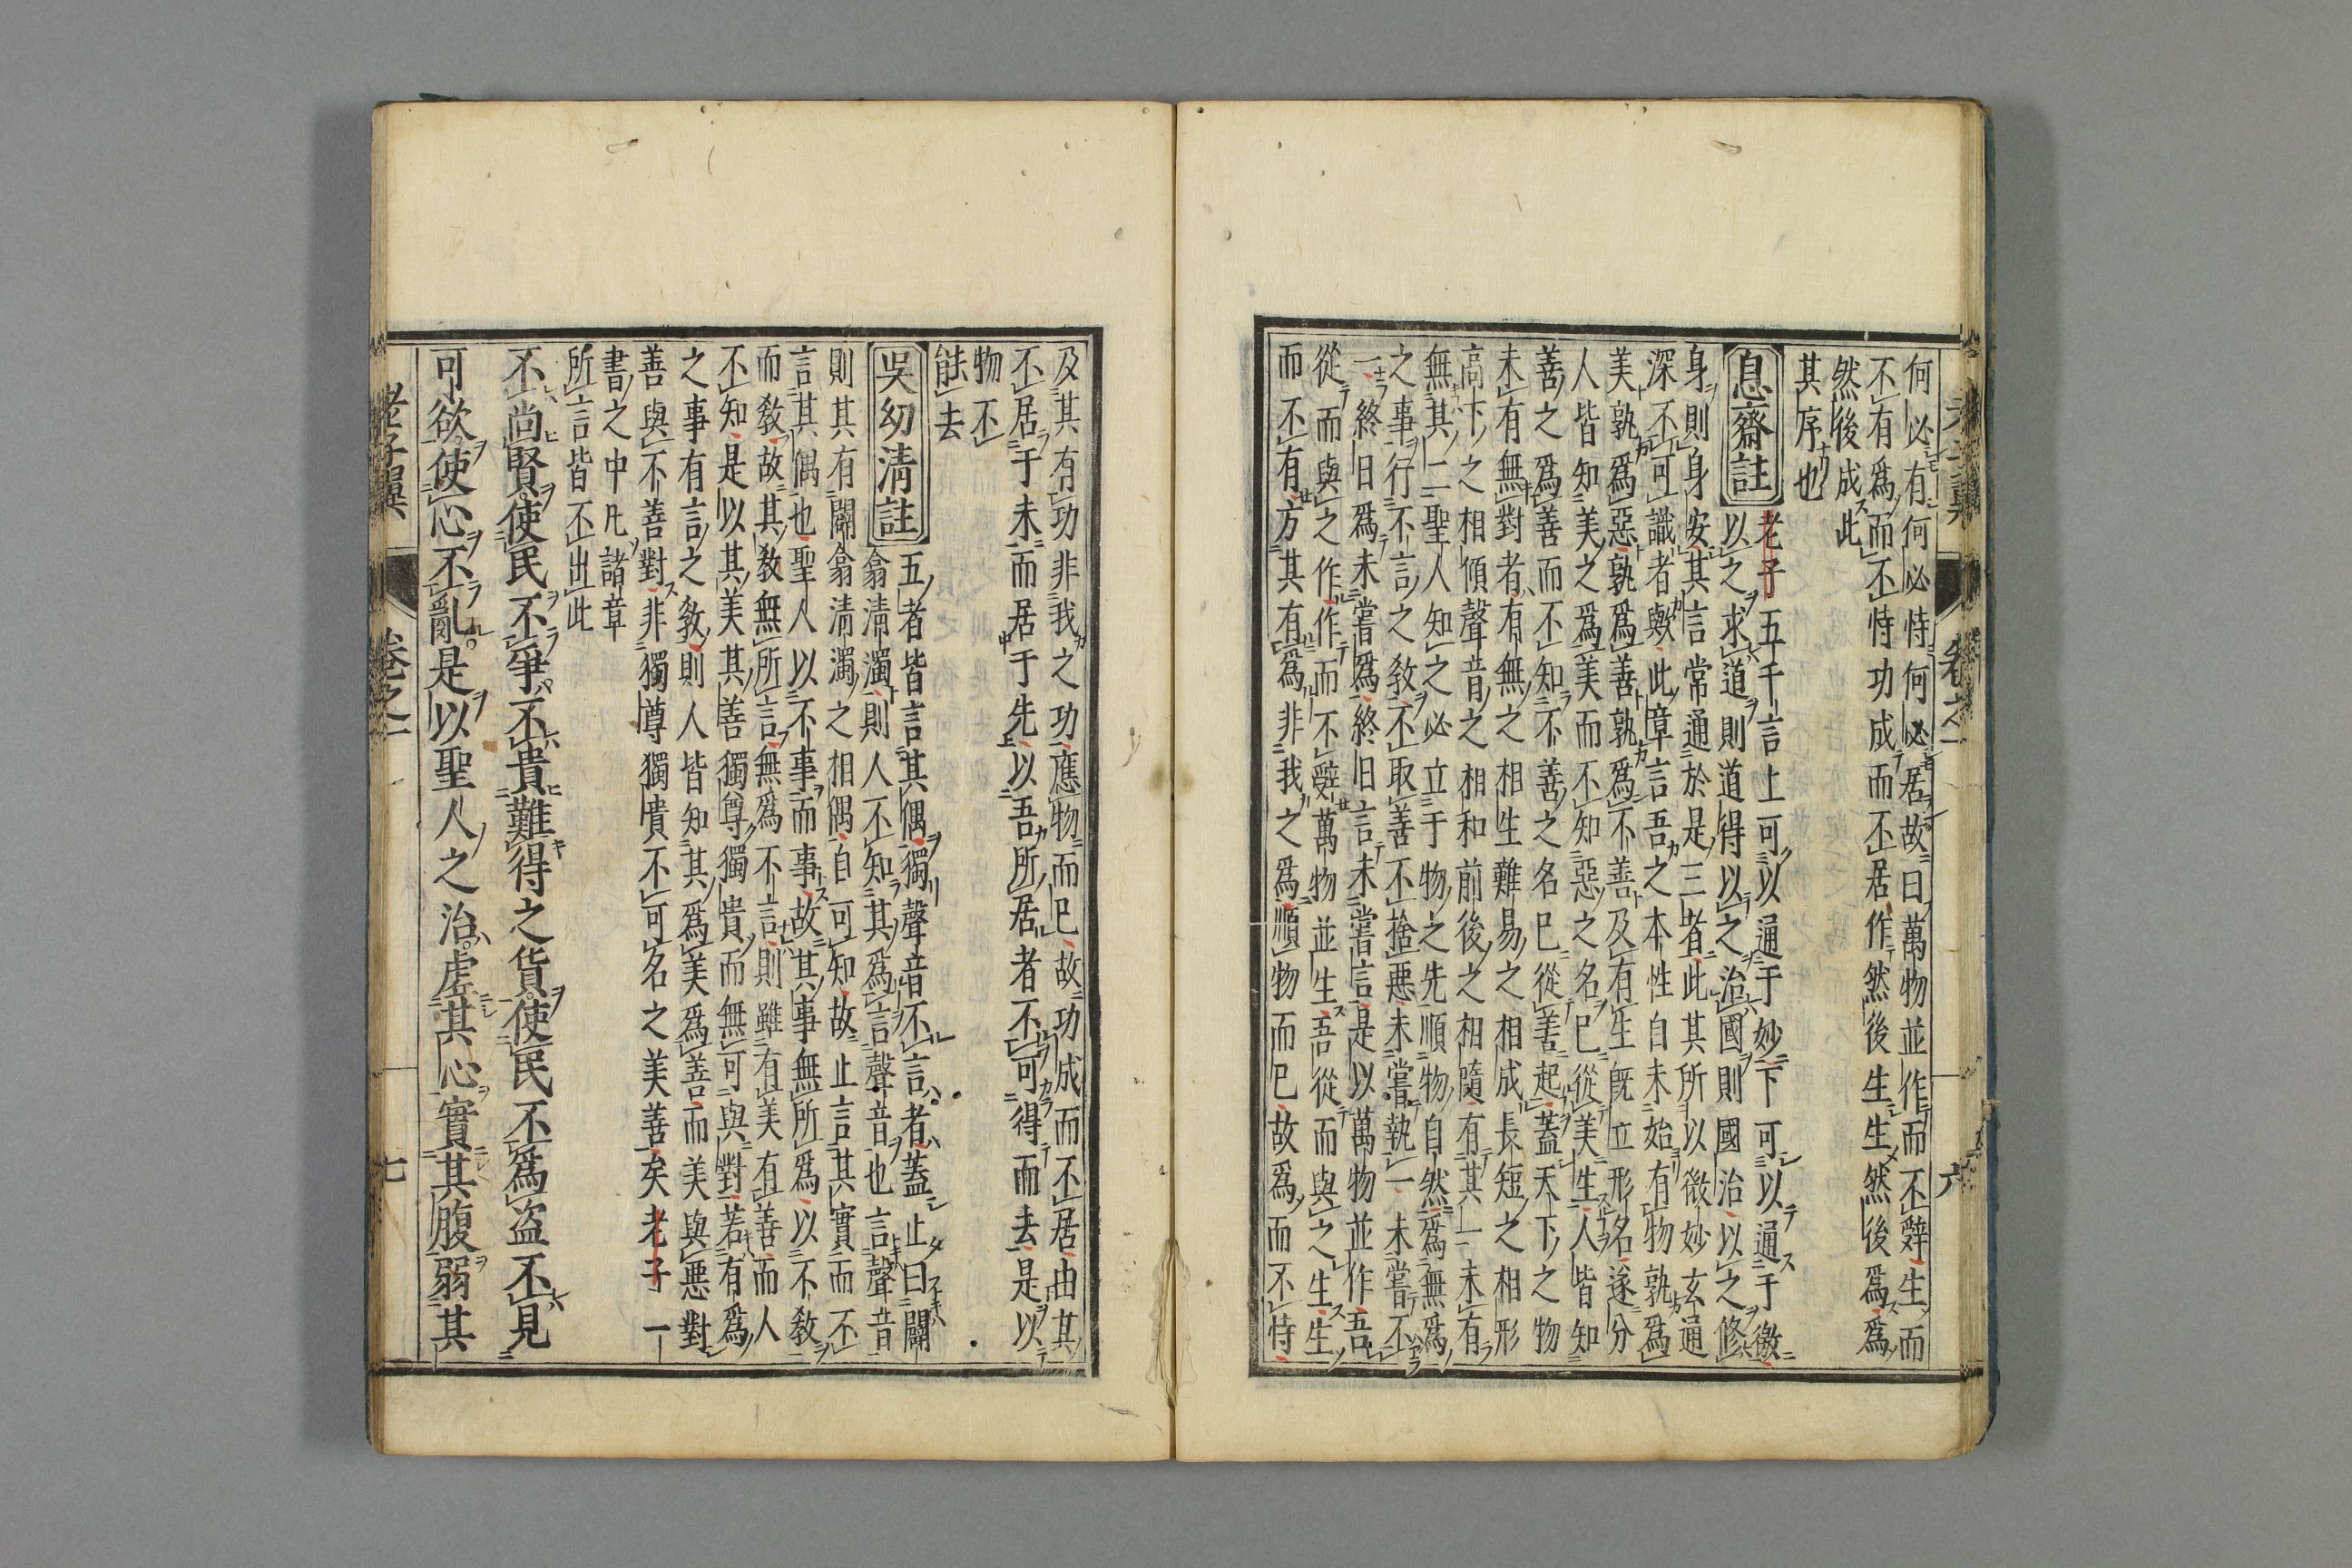 老子翼 卷之一 六
何必有何必恃何必居故曰萬物並作而不辭生而
不有爲而不恃功成而不居作然後生生然後爲爲
然後成此
其序也
息齋註
老子五千言上可以通于妙下可以通于徼
以之求道則道得以之治國則國治以之修
身則身安其言常通於是三者此其所以微妙玄通
深不可識者歟此章言吾之本性自未始有物孰爲
美孰爲惡孰爲善孰爲不善及有生旣立形名遂分
人皆知美之爲美而不知惡之名已從美生人皆知
善之爲善而不知不善之名已從善起蓋天下之物
未有無對者有無之相生難易之相成長短之相形
高下之相傾聲音之相和前後之相隨有其一未有
無其二聖人知之必立于物之先順物自然爲無爲
之事行不言之敎不取善不捨惡未嘗執一未嘗不
一終日爲未嘗爲終日言未嘗言是以萬物並作吾
從而與之作作而不辭萬物並生吾從而與之生生
而不有方其有爲非我之爲順物而已故爲而不恃
及其有功非我之功應物而已故功成而不居由其
不居于未而居于先以吾所居者不可得而去是以
物不
能去
吳幼清註
五者皆言其偶獨聲音不言者蓋止曰闢
翕清濁則人不知其爲言聲音也言聲音
則其有闢翕清濁之相偶自可知故止言其實而不
言其偶也聖人以不事而事故其事無所爲以不敎
而敎故其敎無所言無爲不言則雖有美有善而人
不知是以其美其善獨尊獨貴而無可與對若有爲
之事有言之敎則人皆知其爲美爲善而美與惡對
善與不善對非獨尊獨貴不可名之美善矣老子一
書之中凡諸章
所言皆不出此
不尚賢使民不爭不貴難得之貨使民不爲盜不見
可欲使心不亂是以聖人之治虛其心實其腹弱其
老子翼 卷之一 七